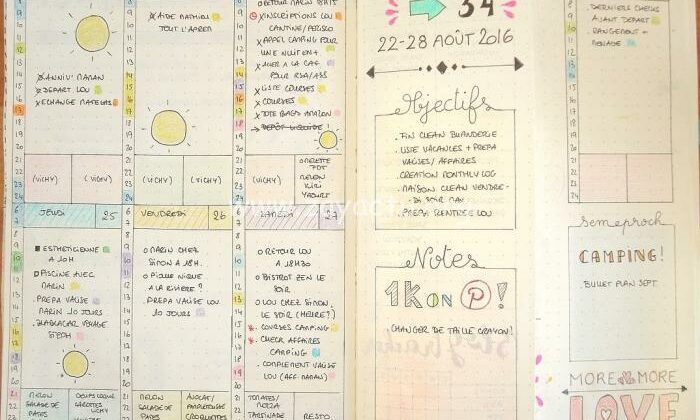 AIDE MATHIEU
TOUT L'APREM
ANNIV' MAMAN
DÉPART LOU
ECHANGE MATELAS
RETOUR MARIN
INSCRIPTIONS LOU
CANTINE/PERISCO
APPEL CAMPING POUR
UNE NUIT EN+
ALLER A LA CAF
POUR RSA/ASS
LISTE COURSES
COURSES
TOTE BAGS AMAZON
DEPOT LIQUIDE
(VICHY)
(VICHY)
(VICHY)
(VICHY)
(VICHY)
MELON
KIRI
YAOURT
JEUDI 25
VENDREDI 26
SAMEDI 27
ESTHETICIENNE
A 10H
PISCINE AVEC
MARIN
PREPA VALISE
MARIN 10 JOURS
BLABLACAR VOYAGE
MARIN CHEZ
SIMON A 18H.
PIQUE NIQUE
A LA RIVIERE?
PREPA VALISE LOU
10 JOURS
RETOUR LOU
A 18H30
BISTROT ZEN LE
SOIR
LOU CHEZ SIMON
LE SOIR (HEURE?)
COURSES CAMPING
CHECK AFFAIRES
CAMPING
COMPLEMENT VALISE
LOU (AFF MAMAN)
MELON
SALADE DE
PATES
OEUFS COQUE
CAROTTES
VICHY
MELON
SALADE DE
PATES
AVOCAT/
PAMPLEMOUSSE
CROQUETTES
TOMATES/
MOZZA
TARTINADE
RESTO
34
22-28 AOÛT 2016
Objectifs
. FIN CLEAN BUANDERIE
. LISTE VACANCES + PREPA
VALISES/AFFAIRES
. CREATION MONTHLY LOG
. MAISON CLEAN VENDRE-
DI SOIR MAX
. PREPA RENTREE LOU
Notes
1K ON P!
CHANGER DE TAILLE CRAYON!
DERNIERS CHECKS
AVANT DEPART
RANGEMENT +
MENAGE
sem eproch
CAMPING!
BULLET PLAN SEPT.
MORE & MORE
LOVE